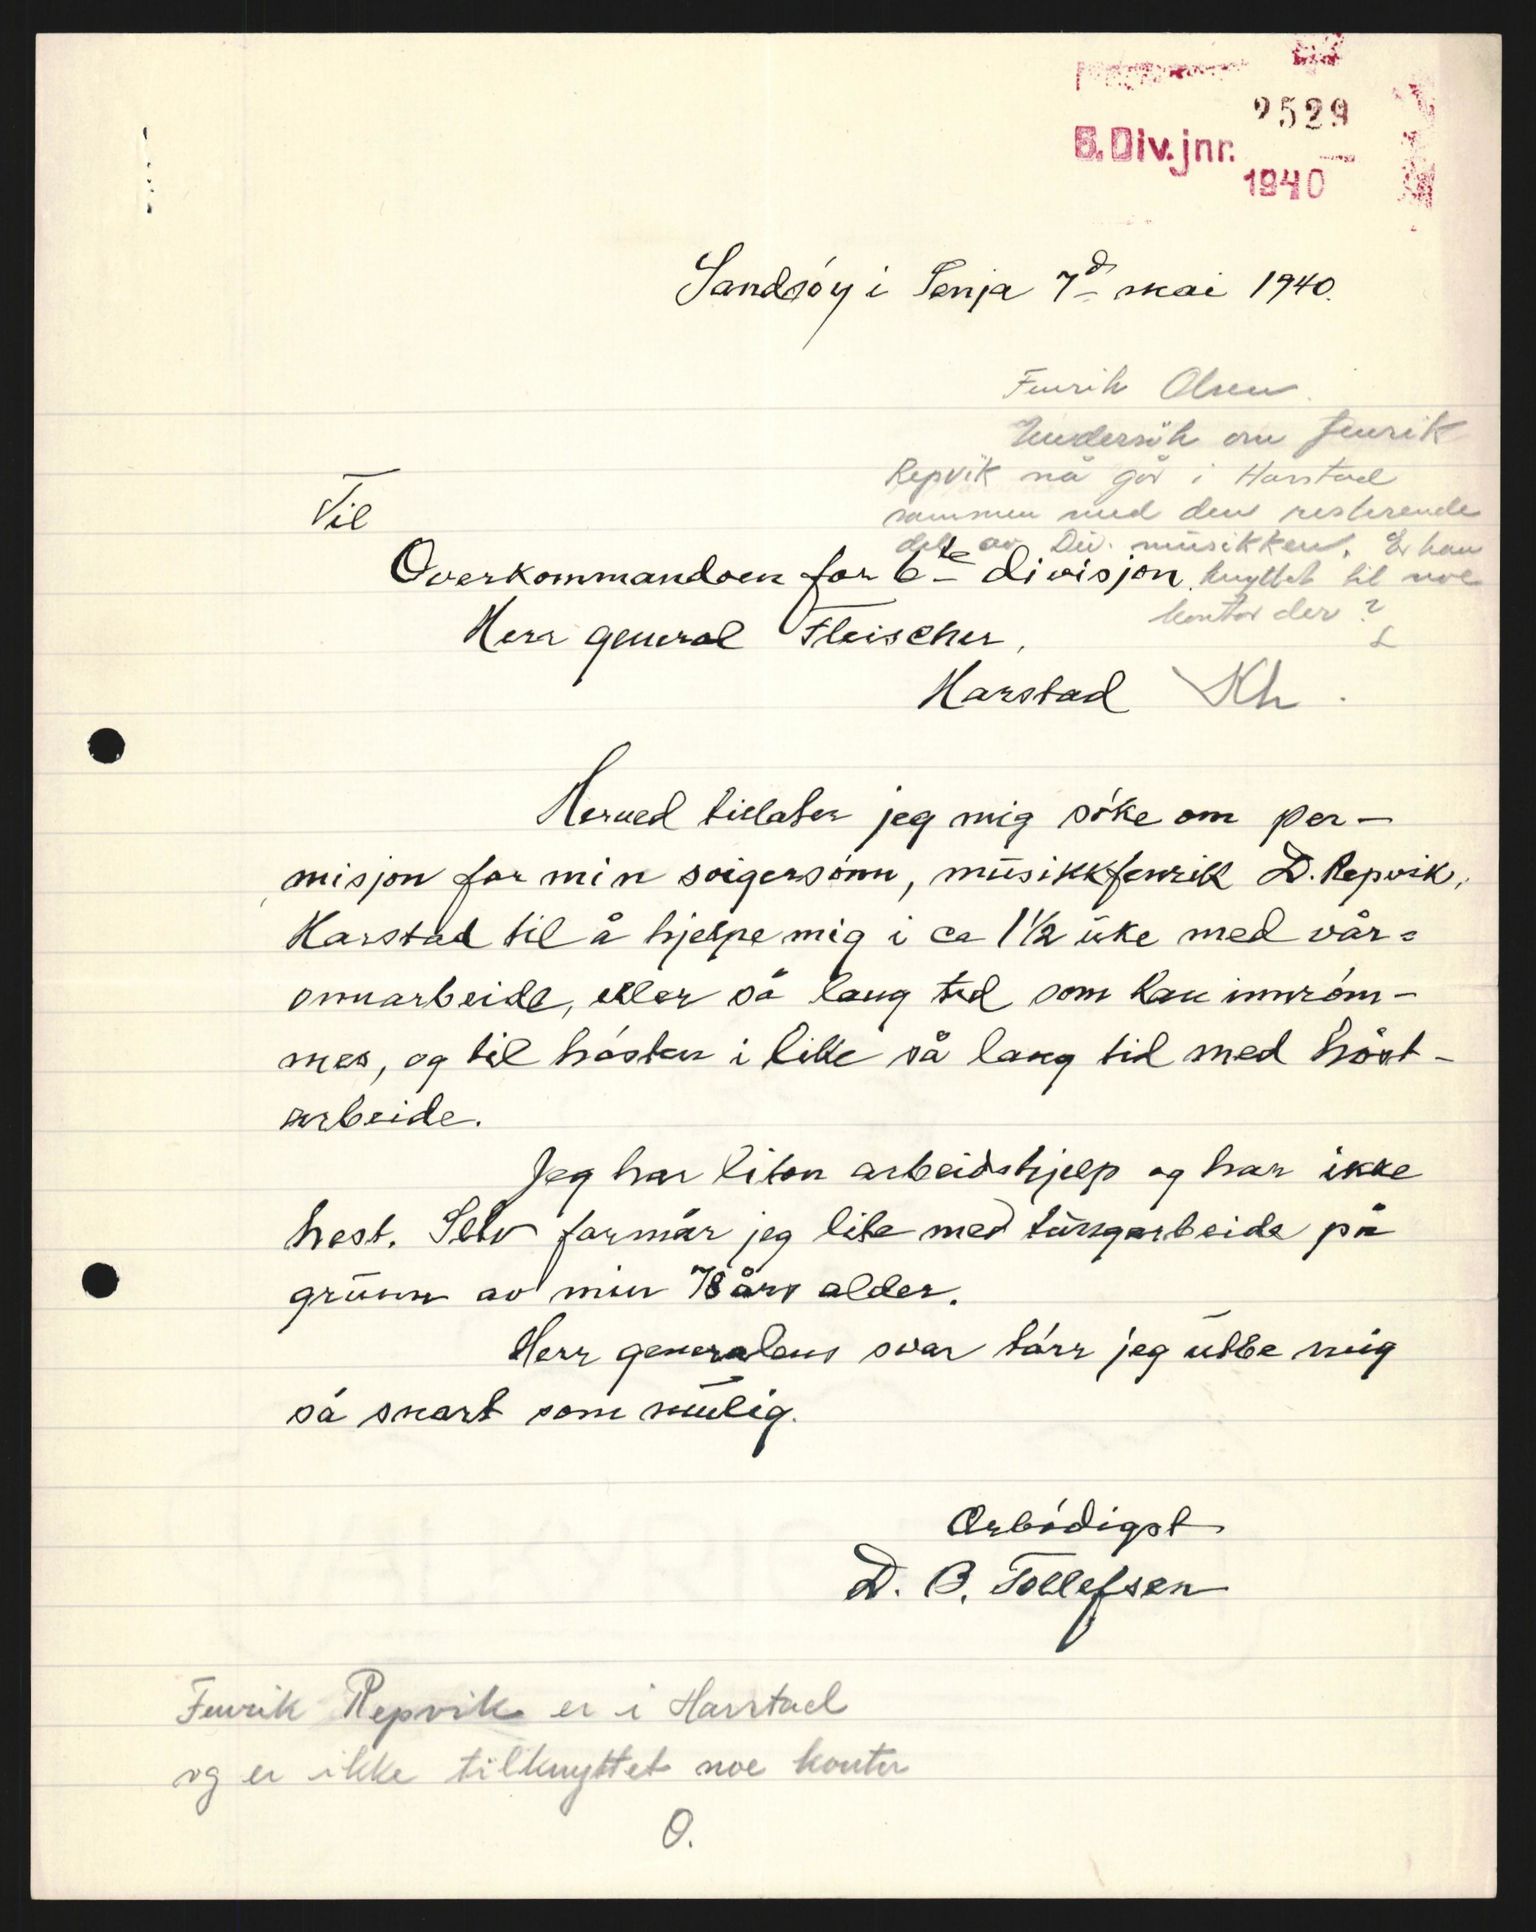 2529
6. Div. jnr.
1940
Sandsöy i Senja 7d mai 1940.
Fenrik Olsen.
Undersök om fenrik
Repvik nå går i Harstad
sammen med den resterende
del av Div. musikken. Er han
knyttet til noe
kontor der?
Til
Overkommandoen for 6te divisjon
Herr general Fleischer,
Harstad
Herved tillater jeg mig söke om per-
misjon for min svigersönn, musikkfenrik D. Repvik,
Harstad til å hjelpe mig i ca 1½ uke med vår-
onnarbeide, eller så lang tid som kan innröm-
mes, og til hösten i like så lang tid med höst-
arbeide.
Jeg har liten arbeidshjelp og har ikke
hest. Selv formår jeg lite med tungarbeide på
grunn av min 78 års alder.
Herr generalens svar törr jeg utbe mig
så snart som mulig.
Ærbödigst
D. B. Tollefsen
Fenrik Repvik er i Harstad
og er ikke tilknyttet noe kontor
O.